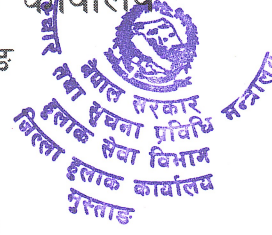 कार्यालय
ङ
नेपाल सरकार
सञ्चार तथा सूचना प्रविधि मन्त्रालय
हुलाक सेवा विभाग
जिल्ला हुलाक कार्यालय
मुस्ताङ